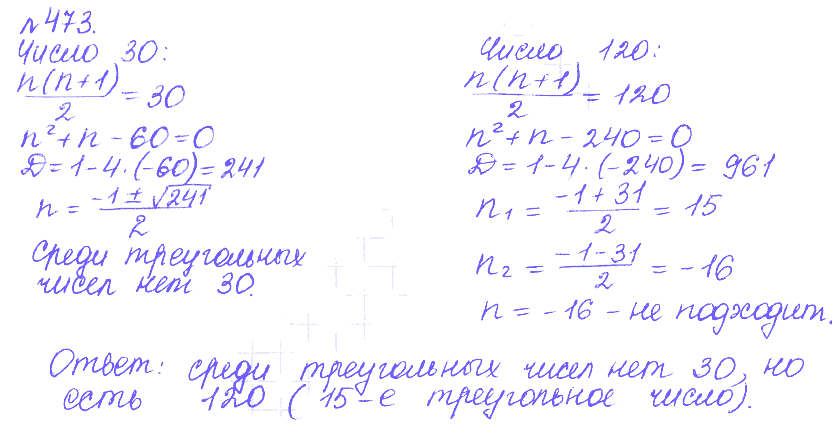 №473.
Число 30:
n(n+1)/2 = 30
n²+n-60=0
D=1-4·(-60)=241
n = (-1±√241)/2
Среди треугольных
чисел нет 30.
Число 120:
n(n+1)/2 = 120
n²+n-240=0
D=1-4·(-240)=961
n₁ = (-1+31)/2 = 15
n₂ = (-1-31)/2 = -16
n = -16 - не подходит.
Ответ: среди треугольных чисел нет 30, но
есть 120 (15-е треугольное число).